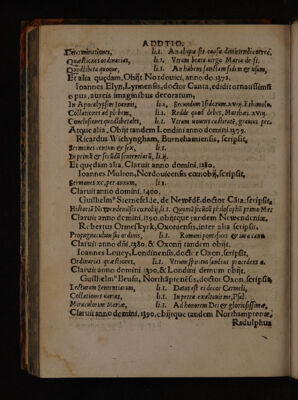 ADDTIO.
Determinationes, li.1. An aliqua sit causa
Quæstiones ordinarias, li.1. Vtrum beata virgo Maria de st.
Quodlibeta quoque, li.1. An habens fidem & usum,
Et alia quędam. Obijt Nordouici, anno do. 1372.
Ioannes Elyn, Lynnensis, doctor Canta, edidit ornatissimū
opus, aureis imaginibus decoratum,
In Apocalypsim Ioannis, li.1. Secundum Isidorum.xvij.Ethimolo.
Collationes ad plebem, li.1. Redde quod debes, Matthæi.xviij.
Conclusiones quodlibetales, li.1. Vtrum mouens
Atque alia, Obijt tandem Londini anno domini.1379.
Ricardus Wichyngham, Burnehamiensis, scripsit,
Sermones centum & sex, li.1.
In primū & secūdū sententiarū, li.ij.
Et quędam alia. Claruit anno domini.1380.
Ioannes Multon, Nordouicensis cœnobij, scripsit,
Sermones xc. per annum, li.1.
Claruit anno domini. 1400.
Guilhelmꝰ Sternefelde, de doctor Cāta, scripsit,
Claruit anno domini.1390. obijtque tandem Newendeniæ.
Robertus Ormeskyrk, Oxoniensis, inter alia scripsit,
Propugnaculum sui ordinis, li.1. Romani pontifices
Claruit anno dñi.1380. & Oxonij tandem obijt.
Ioannes Leuey, Londinensis, doctor Oxon, scripsit,
Ordinarias quæstiones, li.1. Vtrum spiritus sanctus procedens a.
Claruit anno domini. 1390. & Londini demum obijt.
Guilhelmꝰ Beufu, Northāptonēsis, doctor Oxon, scripsit,
Lecturam sententiarum, li.1. Datus est ei decor Carmeli,
Collationes varias, li.1. In petra exaltauit me, Psal.
Miraculorum Mariæ, li.1. Ad honorem Dei & gloriosissimæ,
Claruit anno domini.1390. obijtque tandem Northamptonæ.
Radulphus